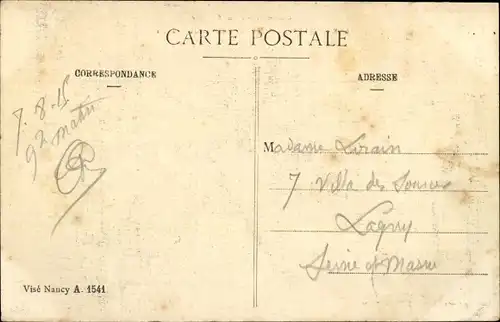 CARTE POSTALE
CORRESPONDANCE
ADRESSE
7. 8. 15
9h matin
Madame Lorain
7 Villa des Sources
Lagny
Seine et Marne
Visé Nancy A. 1541